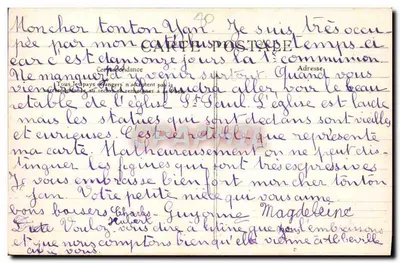 40
Mon cher tonton Yan. Je suis très occu-
pée par mon catéchisme ces temps-ci
CARTE POSTALE
car c'est dans onze jours la 1re communion
Correspondance
Ne manquez d'y venir surtout. Quand vous
Tous les pays étrangers n'acceptent pas la
viendrez il faudra aller voir le beau
retable de l'église St Paul L'église est laide
mais les statues qui sont dedans sont vieilles
et curieuses. C'est ce retable que représente
ma carte. Malheureusement on ne peut dis-
tinguer les figures qui sont très expressives
Je vous embrasse bien fort mon cher tonton
Jan. Votre petite nièce qui vous aime
bons baisers Charles Guyonne Magdeleine
Hubert
Voulez vous dire à que nous l'embrassons
et que nous comptons bien qu'elle vienne à Abbeville
avec vous.